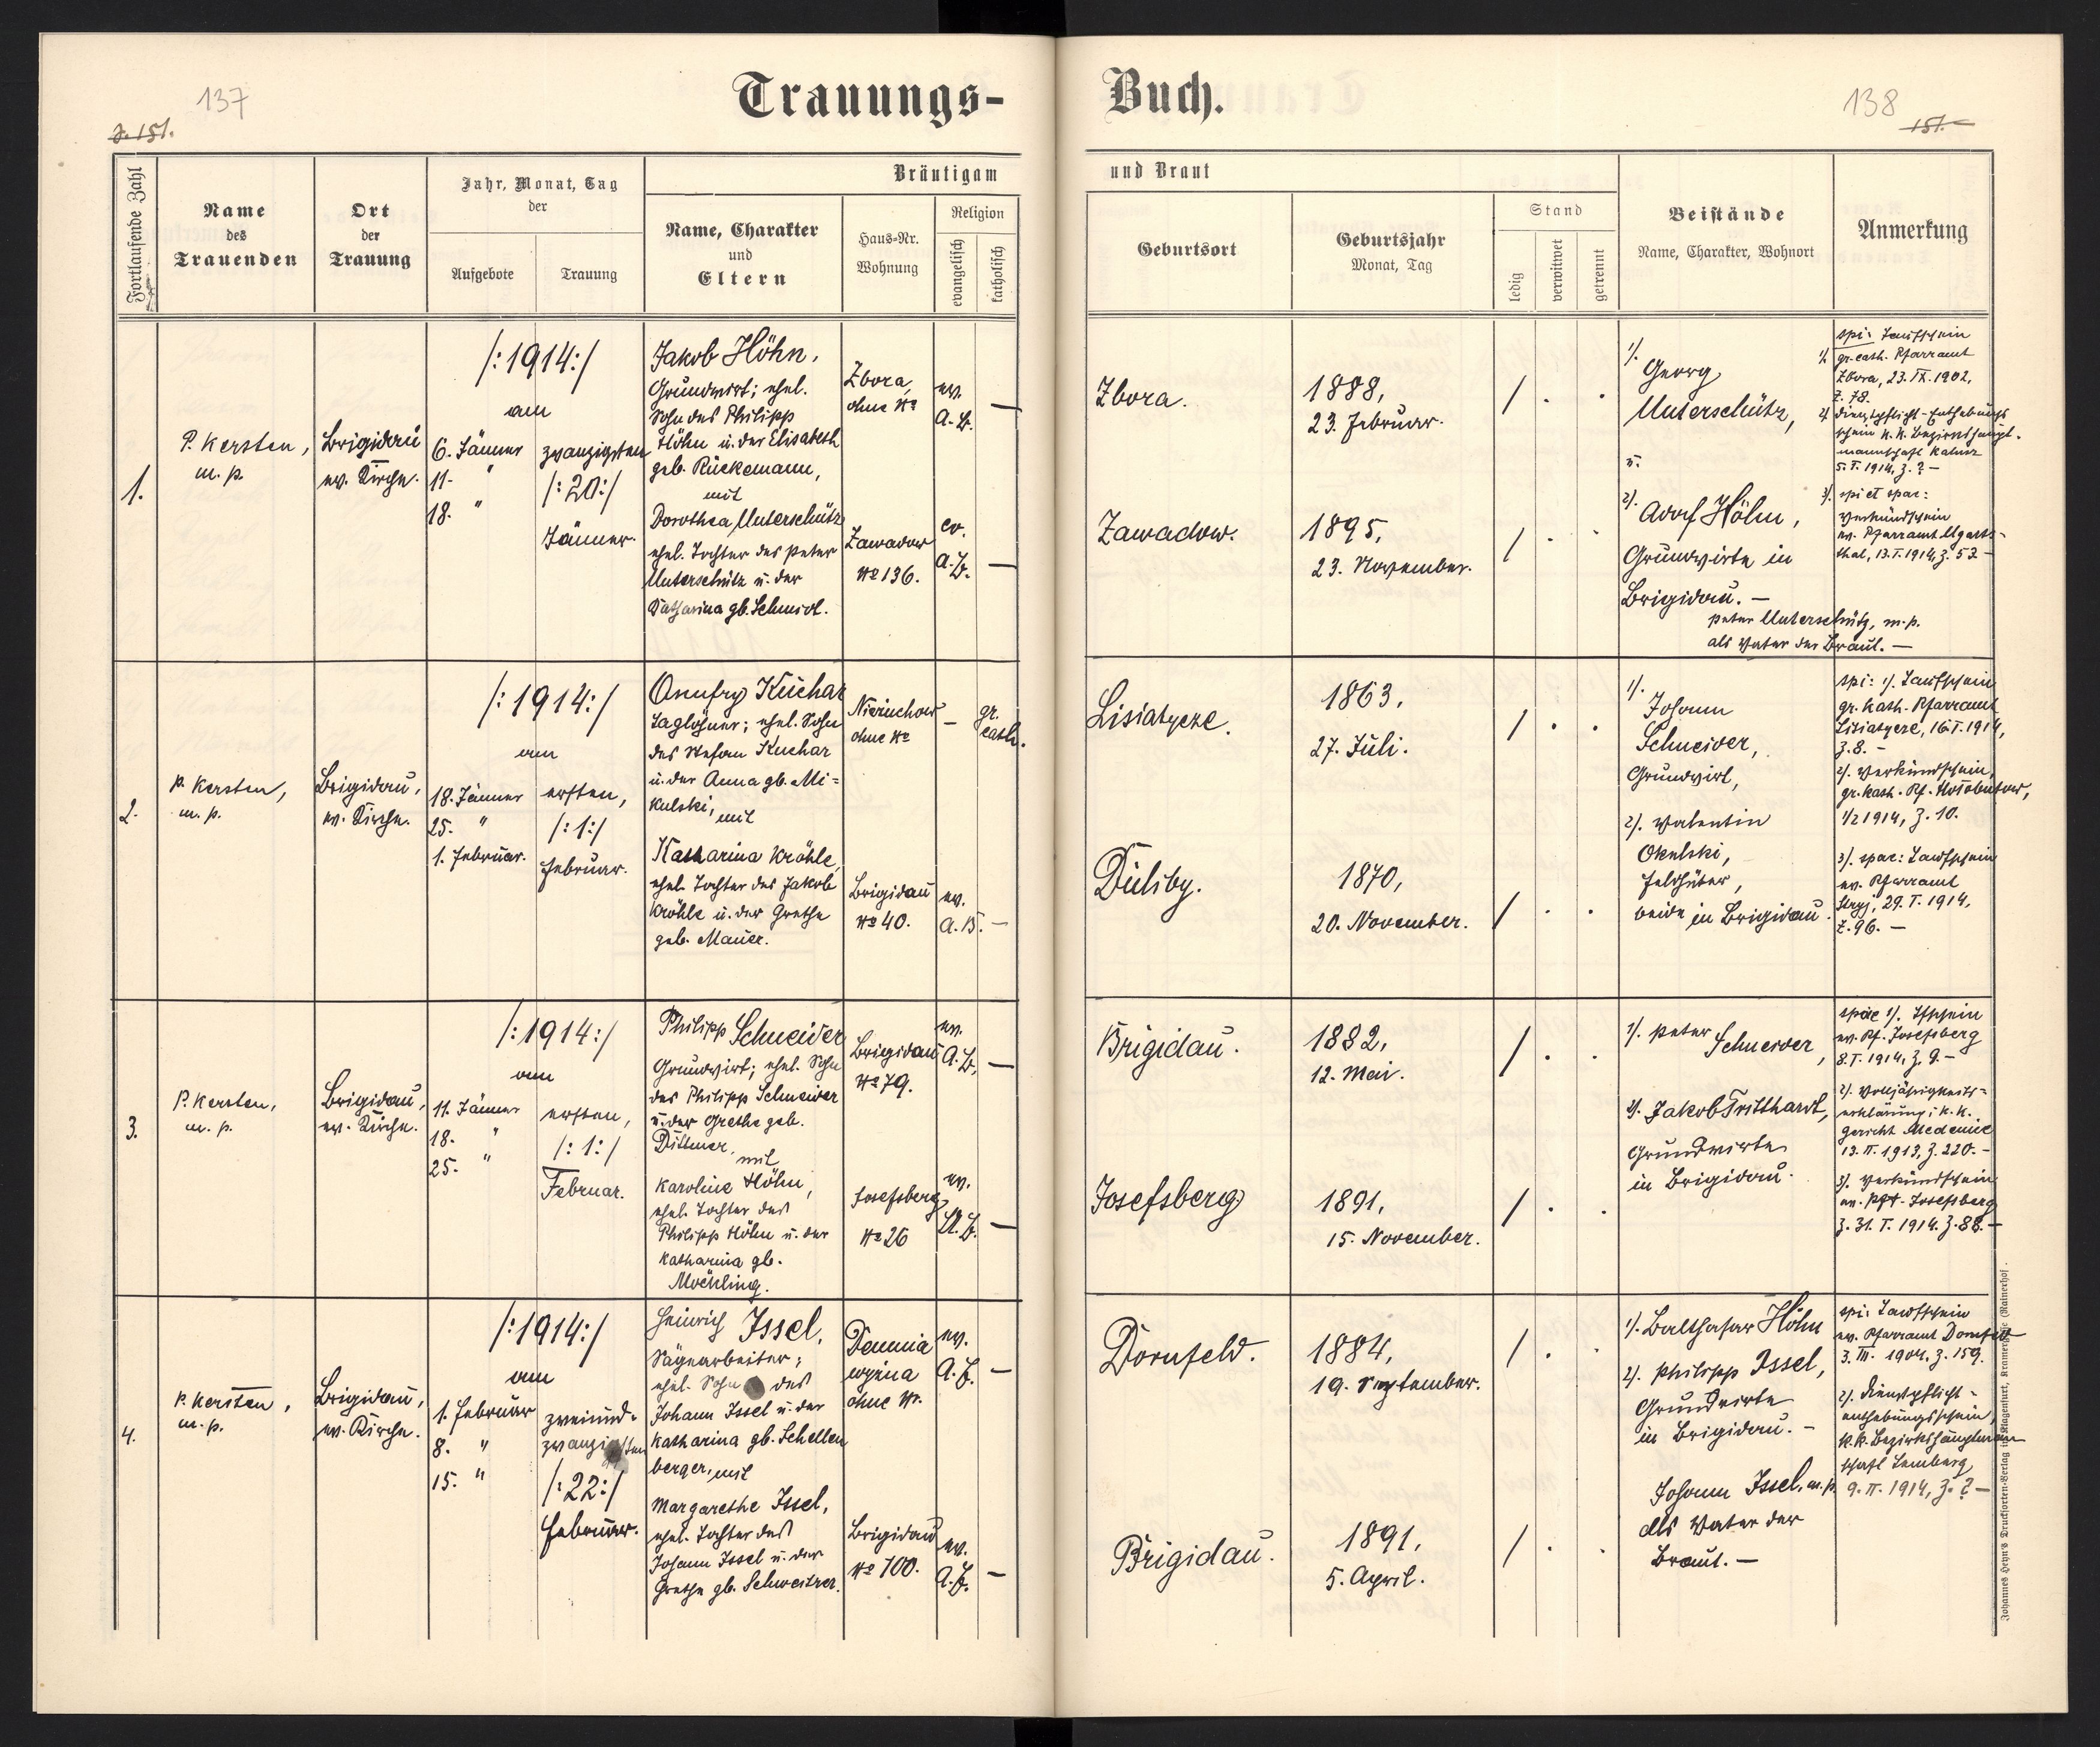 137
Trauungs-
Buch.
138
J. 151.
151.
Fortlaufende Zahl
Name
des
Trauenden
Ort
der
Trauung
Jahr, Monat, Tag
der
Aufgebote
Trauung
Bräutigam
Name, Charakter
und
Eltern
Haus-Nr.
Wohnung
Religion
evangelisch
katholisch
und Braut
Geburtsort
Geburtsjahr
Monat, Tag
Stand
ledig
verwitwet
getrennt
Beistände
Name, Charakter, Wohnort
Anmerkung
1.
P. Kersten,
m. p.
Brigidau
ev. Kirche.
/:1914:/
am
6. Jänner
11. "
18. "
zwanzigsten
/:20:/
Jänner.
Jakob Höhn,
Grundwirt; ehel.
Sohn des Philipp
Höhn u. der Elisabeth
geb. Rückemann,
mit
Dorothea Unterschütz
ehel. Tochter des Peter
Unterschütz u. der
Katharina gb. Schmidt.
Zbora,
ohne No
Zawadow
No 136.
ev.
A. B. —
ev.
A. B. —
Zbora.
Zawadow.
1888,
23. Februar.
1895,
23. November.
/ . .
/ . .
1/.
Georg
Unterschütz,
u.
2/. Adolf Höhn,
Grundwirte in
Brigidau. —
Peter Unterschütz, m. p.
als Vater der Braut. —
spi: Taufschein
1/. gr. cath. Pfarramt
Zbora, 23. IX. 1902,
Z. 78.
2/. Dienstpflicht-Enthebungs
schein k. k. Bezirkshaupt-
mannschaft Kalusz
5. I. 1914, Z. ? —
3/. spi et spae:
Verkündschein
ev. Pfarramt Ugarts-
thal, 13. I. 1914, Z. 52 —
2.
P. Kersten,
m. p.
Brigidau,
ev. Kirche.
/:1914:/
am
18. Jänner
25. "
1. Februar.
ersten,
/:1:/
Februar.
Onufry Kuchar
Taglöhner; ehel. Sohn
des Stefan Kuchar
u. der Anna gb. Mi=
kulski, mit
Katharina Kröhle,
ehel. Tochter des Jakob
Kröhle u. der Grethe
geb. Mauer.
Nieżuchow
ohne No
Brigidau
No 40.
— gr.
cath.
ev.
A. B. —
Lisiatycze.
Duliby.
1863,
27. Juli.
1870,
20. November.
/ . .
/ . .
1/.
Johann
Schneider,
Grundwirt,
2/. Valentin
Okulski,
Feldhüter,
beide in Brigidau.
spi: 1/. Taufschein
gr. kath. Pfarramt
Lisiatycze, 16. I. 1914,
Z. 8. —
2/. Verkündschein,
gr. kath. Pf. Hołobutow,
1/2 1914, Z. 10.
3/. spae: Taufschein
ev. Pfarramt
Stryj, 29. I. 1914,
Z. 96. —
3.
P. Kersten,
m. p.
Brigidau,
ev. Kirche.
/:1914:/
am
11. Jänner
18. "
25. "
ersten,
/:1:/
Februar.
Philipp Schneider
Grundwirt; ehel. Sohn
des Philipp Schneider
u. der Grethe geb.
Dittmer, mit
Karoline Höhn,
ehel. Tochter des
Philipp Höhn u. der
Katharina gb.
Möckling.
Brigidau
No 79.
Josefsberg
No 26
ev.
A. B. —
ev.
A. B. —
Brigidau.
Josefsberg
1882,
12. Mai.
1891,
15. November.
/ . .
/ . .
1/. Peter
Schneider,
2/. Jakob Tritthardt,
Grundwirte
in Brigidau.
spae 1/. Tfschein
ev. Pf. Josefsberg
8. I. 1914, Z. 9. —
2/. Volljährigkeits=
erklärung; k. k.
Gericht Medenice
13. II. 1913, Z. 220. —
3/. Verkündschein
ev. Pft. Josefsberg
Z. 31. I. 1914. Z. 88. —
4.
P. Kersten,
m. p.
Brigidau,
ev. Kirche.
/:1914:/
am
1. Februar
8. "
15. "
zweiund-
zwanzigsten
/:22:/
Februar.
Heinrich Issel,
Sägearbeiter;
ehel. Sohn des
Johann Issel u. der
Katharina gb. Schellen
berger, mit
Margarethe Issel,
ehel. Tochter des
Johann Issel u. der
Grethe gb. Schweitzer.
Demnia
wyżna
ohne Nr.
Brigidau
No 100.
ev.
A. B. —
ev.
A. B. —
Dornfeld.
Brigidau.
1884,
19. September.
1891,
5. April.
/ . .
/ . .
1/. Balthasar Höhn
2/. Philipp Issel,
Grundwirte
in Brigidau. —
Johann Issel, m. p.
als Vater der
Braut. —
spi: Taufschein
ev. Pfarramt Dornfeld
3. III. 1904, Z. 159.
2/. Dienstpflicht-
enthebungsschein,
k. k. Bezirkshauptmann
schaft Lemberg
9. II. 1914, Z. ? —
Johannes Heyn's Drucksorten-Verlag in Klagenfurt, Kramergasse (Rainerhof).